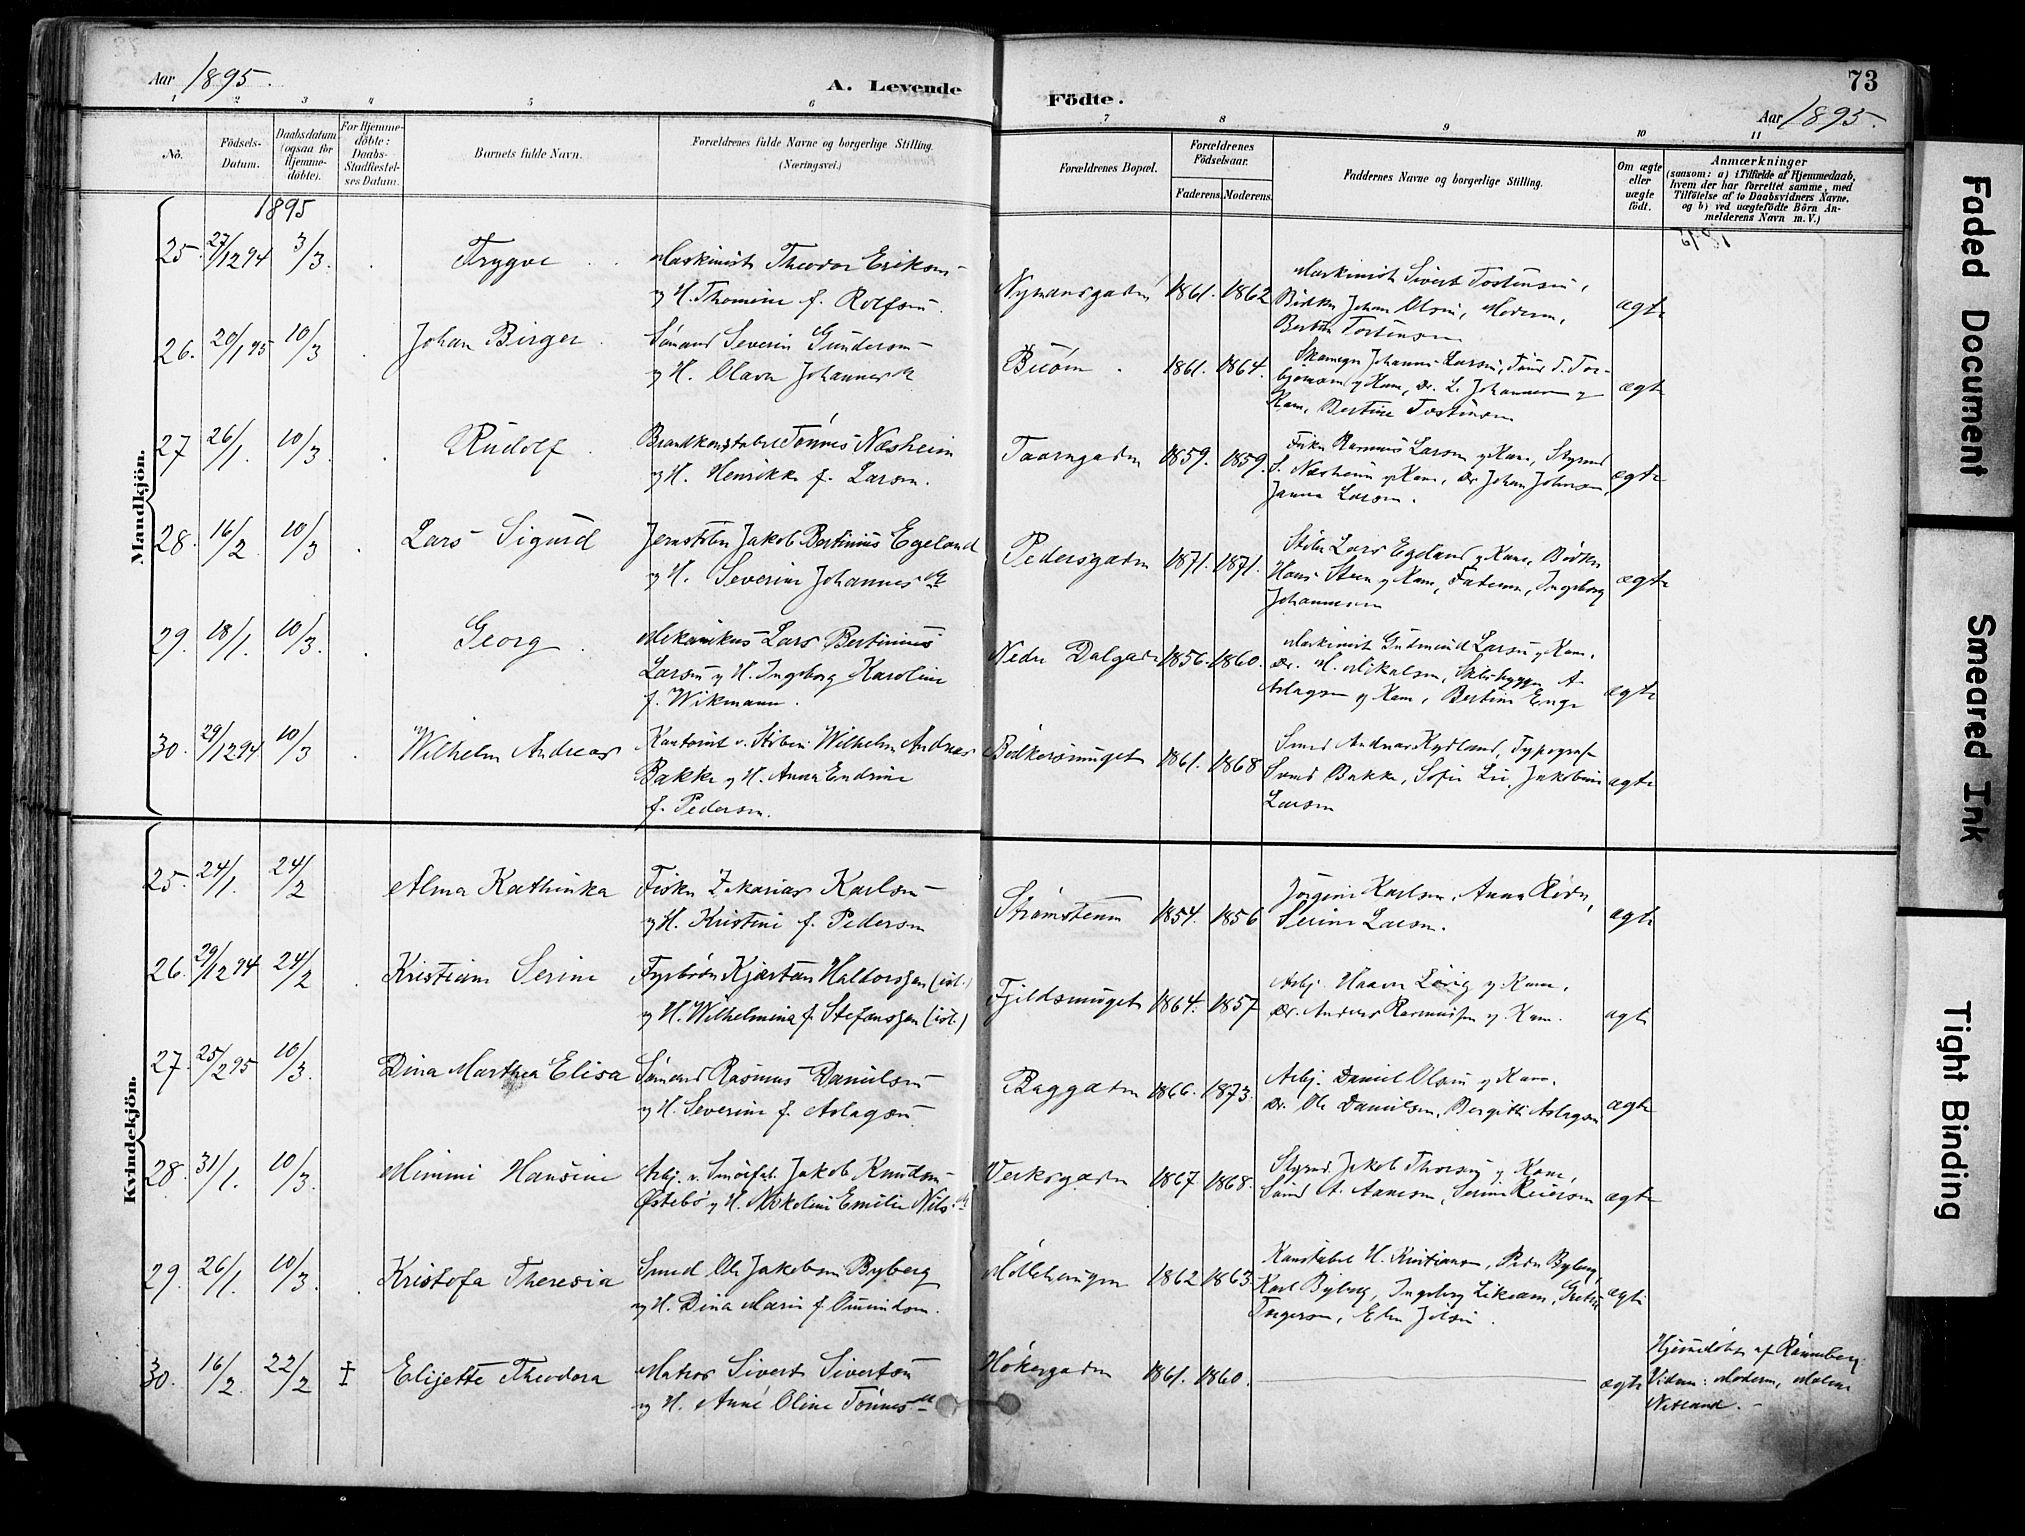 Aar 1895.
A. Levende
Födte.
73
Aar 1895.
1 2 3 4 5 6 7 8 9 10 11
No.
Födsels-Datum.
Daabsdatum (ogsaa for Hjemmedöbte).
For Hjemmedöbte: Daabs-Stadfæstelses Datum.
Barnets fulde Navn.
Forældrenes fulde Navne og borgerlige Stilling.
(Næringsvei.)
Forældrenes Bopæl.
Forældrenes Födselsaar.
Faderens. Moderens.
Faddernes Navne og borgerlige Stilling.
Om ægte eller uægte födt.
Anmærkninger
(saasom: a) i Tilfælde af Hjemmedaab,
hvem der har forrettet samme, med
Tilföielse af to Daabsvidners Navne.
og b) ved uægtefödte Börn An-
melderens Navn m. V.)
Mandkjön.
1895
25. 27/12 94 3/3. Trygve Maskinist Theodor Eriksen
og H. Thomine f. Rolfsen.
Nymansgaden 1861. 1862 Maskinist Sivert Tostensen,
Bødker Johan Olsen, Moderen,
Tostensen
ægte
26. 20/1 95 10/3 Johan Birger Sømand Severin Gundersen
og H. Olava Johannesdt
Buøen. 1861. 1864. Johannes Larsen,
L. Johannesen og
Kone, Bertine Tostensen
ægte
27 26/1. 10/3. Rudolf Brandkonstabel Tönnes Næsheim
og H. Henrikke f. Larsen.
Taarngaden 1859. 1859. Fisker Rasmus Larsen og Kone, Styrmd
S. Næsheim og Kone, Dr. Johan Johnsen,
Janna Larsen.
ægte
28. 16/2. 10/3 Lars Sigurd Jernstøber Jakob Bertinius Egeland
og H. Severine Johannesdt
Pedersgaden 1871. 1871. Støber Lars Egeland og Kone, Bødker
Hans Steen og Kone, Faderen, Ingeborg
Johannesen
ægte
29. 18/1. 10/3. Georg Mekanikus Lars Bertinius
Larsen og H. Ingeborg Karoline
f. Wikmann.
Nedre Dalgade 1856. 1860. Maskinist Gudmund Larsen og Kone,
Dr. M. Mikalsen, Skibsbygger A.
Aslagsen og Kone, Bertine Enge
ægte
30. 29/12 94 10/3 Wilhelm Andreas Kontorist v. Støberi Wilhelm Andreas
Bakke og H. Anna Endrine
f. Pedersen.
Bødkersmuget 1861. 1868 Smed Andreas Kydland, Typograf
Bakke, Sofie Lie, Jakobine
Larsen
ægte
Kvindekjön.
25. 24/1. 24/2 Alma Kathinka Fisker Zakarias Karlsen
og H. Kristine f. Pedersen
Strømsteen 1854. 1856 Jørgine Karlsen, Anna
Serine Larsen.
ægte
26. 29/12 94 24/2 Kristiane Serine Fyrbøder Kjartan Haldorssen (isl.)
og H. Wilhelmina f. Stefanssen (isl.)
Fjeldsmuget 1864. 1857 Arbj. Haavar og Kone,
Dr. Anders Rasmussen og Kone.
ægte
27. 25/2 95 10/3. Dina Marthea Elisa Sømand Rasmus Danielsen
og H. Severine f. Aslagsen
Baggaden 1866. 1873. Arbj. Daniel Olsen og Kone.
Dr. Ole Danielsen, Bergitte Aslagsen
ægte
28. 31/1. 10/3. Mimmi Hansine Arbj. v. Smørfab. Jakob Knudsen
Østebø og H. Nikoline Emilie Nilsdt
Verksgaden 1867. 1868. Styrmd. Jakob Thorsen og Kone,
A. Aanesen, Serine Reiersen
ægte
29. 26/1. 10/3. Kristofa Theresia Smed Ole Jakobsen Byberg
og H. Dina Marie f. Omundsen.
Møllehaugen 1862 1863. Konstabel H. Kristiansen, Peder Byberg,
Karl Byberg, Ingeborg
Torgersen,
ægte
30. 16/2. 22/2 ‡ Elisette Theodora Matros Sivert Sivertsen
og H. Anne Oline Tönnesdt
Høkergaden 1861. 1860. ægte Hjemdøbt af Rønneberg.
Vidner: Moderen, Malene
Netland.
Faded Document
Smeared Ink
Tight Binding